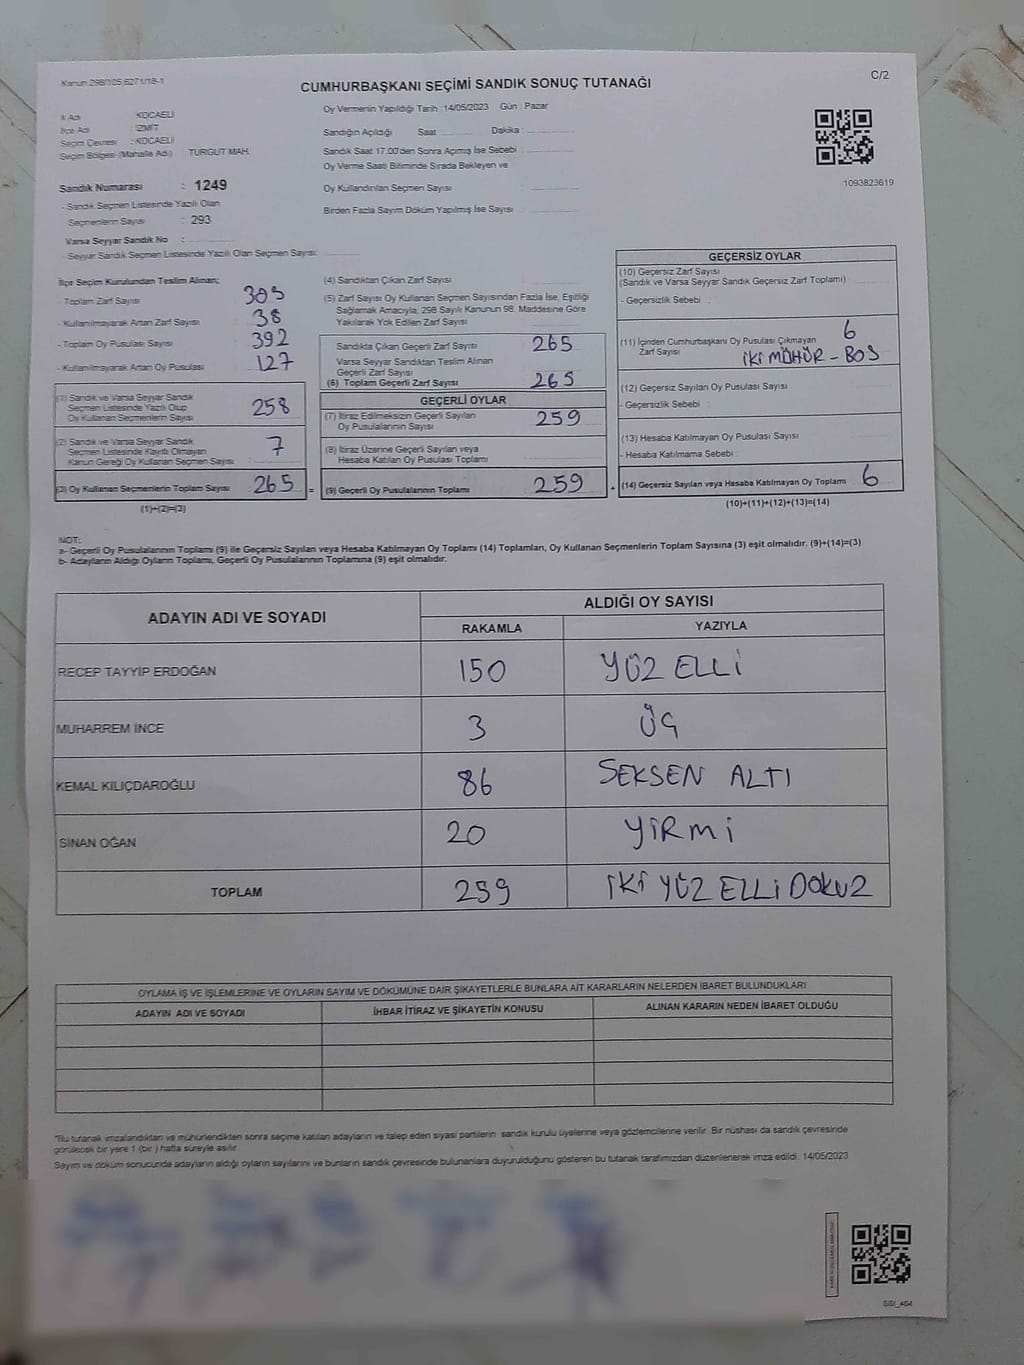 Kanun 298/105,6271/18-1
C/2
CUMHURBAŞKANI SEÇİMİ SANDIK SONUÇ TUTANAĞI
İl Adı KOCAELİ
İlçe Adı İZMİT
Seçim Çevresi : KOCAELİ
Seçim Bölgesi (Mahalle Adı) TURGUT MAH.
Sandık Numarası : 1249
- Sandık Seçmen Listesinde Yazılı Olan
Seçmenlerin Sayısı : 293
Varsa Seyyar Sandık No :
- Seyyar Sandık Seçmen Listesinde Yazılı Olan Seçmen Sayısı:
Oy Vermenin Yapıldığı Tarih : 14/05/2023 Gün : Pazar
Sandığın Açıldığı Saat Dakika :
Sandık Saat 17.00'den Sonra Açımış İse Sebebi :
Oy Verme Saati Bitiminde Sırada Bekleyen ve
Oy Kullandırılan Seçmen Sayısı :
Birden Fazla Sayım Döküm Yapılmış İse Sayısı :
1093823619
İlçe Seçim Kurulundan Teslim Alınan;
- Toplam Zarf Sayısı 303
- Kullanılmayarak Artan Zarf Sayısı 38
- Toplam Oy Pusulası Sayısı 392
- Kullanılmayarak Artan Oy Pusulası 127
(1) Sandık ve Varsa Seyyar Sandık
Seçmen Listesinde Yazılı Olup
Oy Kullanan Seçmenlerin Sayısı 258
(2) Sandık ve Varsa Seyyar Sandık
Seçmen Listesinde Kayıtlı Olmayan
Kanun Gereği Oy Kullanan Seçmen Sayısı : 7
(3) Oy Kullanan Seçmenlerin Toplam Sayısı 265 =
(1)+(2)=(3)
(4) Sandıktan Çıkan Zarf Sayısı
(5) Zarf Sayısı Oy Kullanan Seçmen Sayısından Fazla İse, Eşitliği
Sağlamak Amacıyla, 298 Sayılı Kanunun 98. Maddesine Göre
Yakılarak Yok Edilen Zarf Sayısı
Sandıkta Çıkan Geçerli Zarf Sayısı 265
Varsa Seyyar Sandıktan Teslim Alınan
Geçerli Zarf Sayısı
(6) Toplam Geçerli Zarf Sayısı 265
GEÇERLİ OYLAR
(7) İtiraz Edilmeksizin Geçerli Sayılan
Oy Pusulalarının Sayısı 259
(8) İtiraz Üzerine Geçerli Sayılan veya
Hesaba Katılan Oy Pusulası Toplamı
(9) Geçerli Oy Pusulalarının Toplamı 259 +
GEÇERSİZ OYLAR
(10) Geçersiz Zarf Sayısı
(Sandık ve Varsa Seyyar Sandık Geçersiz Zarf Toplamı)
- Geçersizlik Sebebi :
(11) İçinden Cumhurbaşkanı Oy Pusulası Çıkmayan 6
Zarf Sayısı İKİ MÜHÜR - BOŞ
(12) Geçersiz Sayılan Oy Pusulası Sayısı
- Geçersizlik Sebebi :
(13) Hesaba Katılmayan Oy Pusulası Sayısı
- Hesaba Katılmama Sebebi :
(14) Geçersiz Sayılan veya Hesaba Katılmayan Oy Toplamı 6
(10)+(11)+(12)+(13)=(14)
NOT:
a- Geçerli Oy Pusulalarının Toplamı (9) ile Geçersiz Sayılan veya Hesaba Katılmayan Oy Toplamı (14) Toplamları, Oy Kullanan Seçmenlerin Toplam Sayısına (3) eşit olmalıdır. (9)+(14)=(3)
b- Adayların Aldığı Oyların Toplamı, Geçerli Oy Pusulalarının Toplamına (9) eşit olmalıdır.
ADAYIN ADI VE SOYADI ALDIĞI OY SAYISI
RAKAMLA YAZIYLA
RECEP TAYYİP ERDOĞAN 150 YÜZ ELLİ
MUHARREM İNCE 3 ÜÇ
KEMAL KILIÇDAROĞLU 86 SEKSEN ALTI
SİNAN OĞAN 20 YİRMİ
TOPLAM 259 İKİ YÜZ ELLİ DOKUZ
OYLAMA İŞ VE İŞLEMLERİNE VE OYLARIN SAYIM VE DÖKÜMÜNE DAİR ŞİKAYETLERLE BUNLARA AİT KARARLARIN NELERDEN İBARET BULUNDUKLARI
ADAYIN ADI VE SOYADI İHBAR İTİRAZ VE ŞİKAYETİN KONUSU ALINAN KARARIN NEDEN İBARET OLDUĞU
*Bu tutanak imzalandıktan ve mühürlendikten sonra seçime katılan adayların ve talep eden siyasi partilerin sandık kurulu üyelerine veya gözlemcilerine verilir. Bir nüshası da sandık çevresinde
görülecek bir yere 1 (bir ) hafta süreyle asılır.
Sayım ve döküm sonucunda adayların aldığı oyların sayılarını ve bunların sandık çevresinde bulunanlara duyurulduğunu gösteren bu tutanak tarafımızdan düzenlenerek imza edildi. 14/05/2023
SSI_404